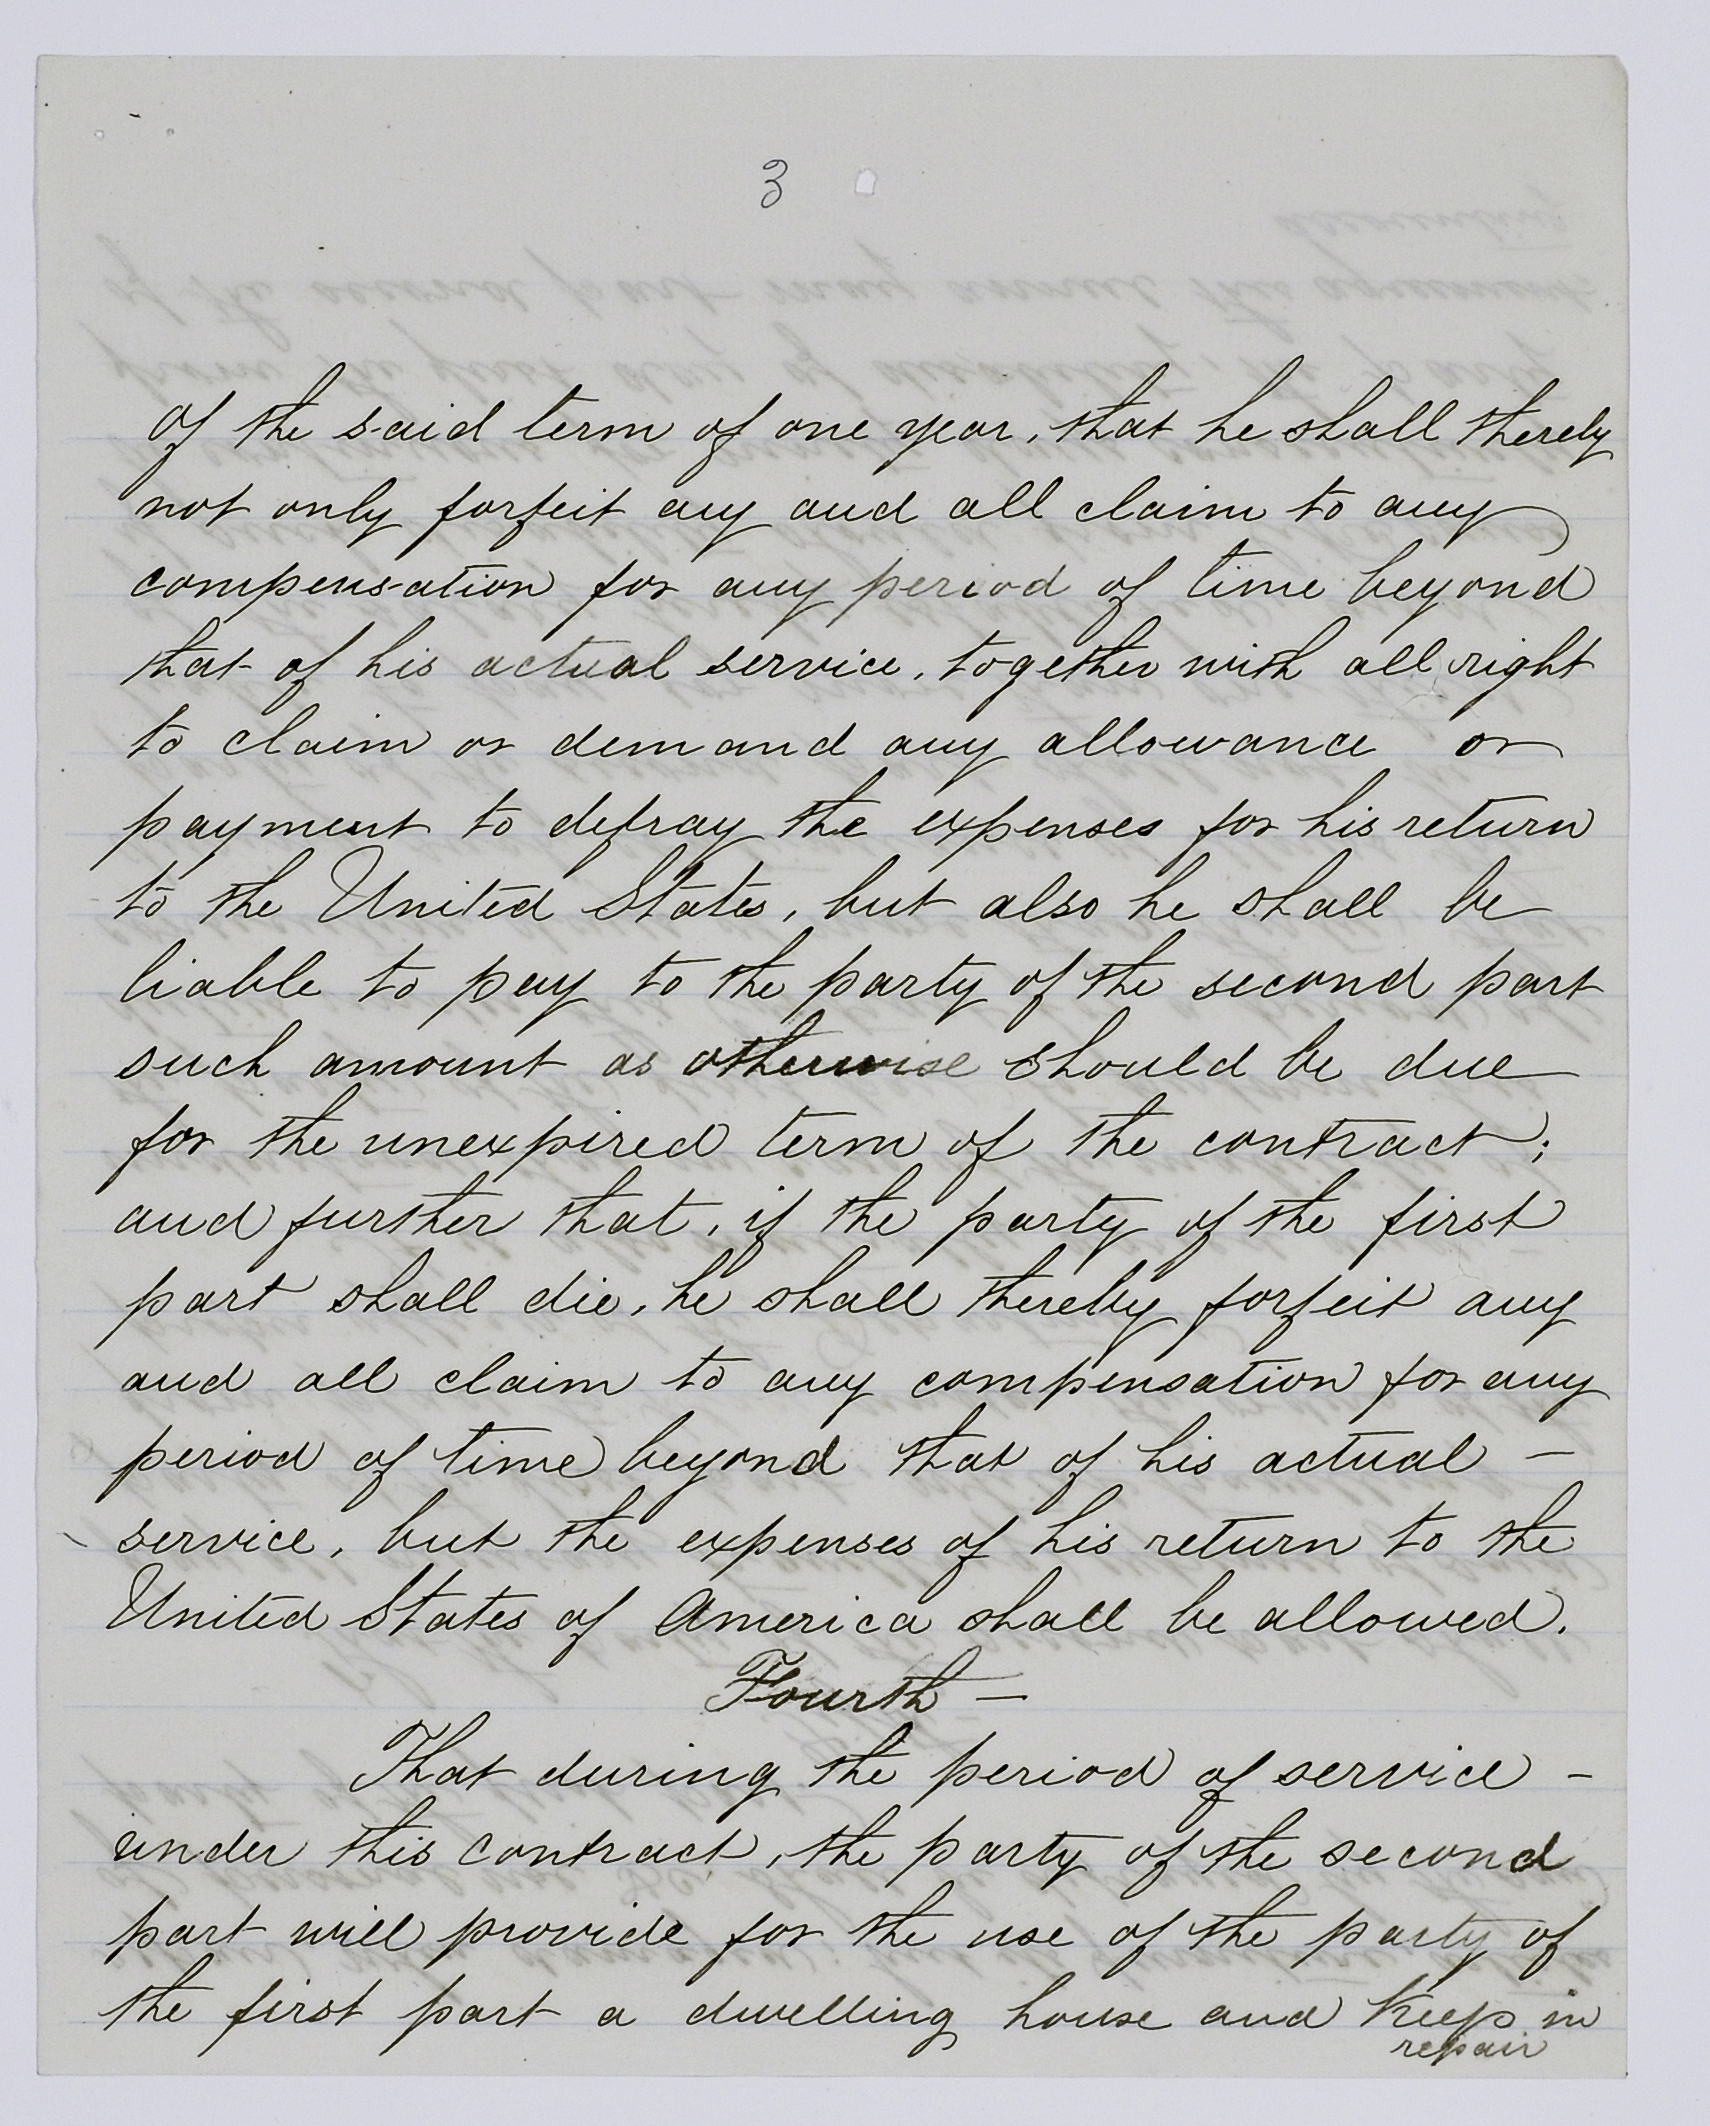 3
of the said term of one year, that he shall thereby
not only forfeit any and all claim to any
compensation for any period of time beyond
that of his actual service, together with all right
to claim or demand any allowance or
payment to defray the expenses for his return
to the United States, but also he shall be
liable to pay to the party of the second part
such amount as otherwise should be due
for the unexpired term of the contract;
and further that, if the party of the first
part shall die, he shall thereby forfeit any
and all claim to any compensation for any
period of time beyond that of his actual –
service, but the expenses of his return to the
United States of America shall be allowed.
Fourth –
That during the period of service –
under this contract, the party of the second
part will provide for the use of the party of
the first part a dwelling house and Keep in
repair